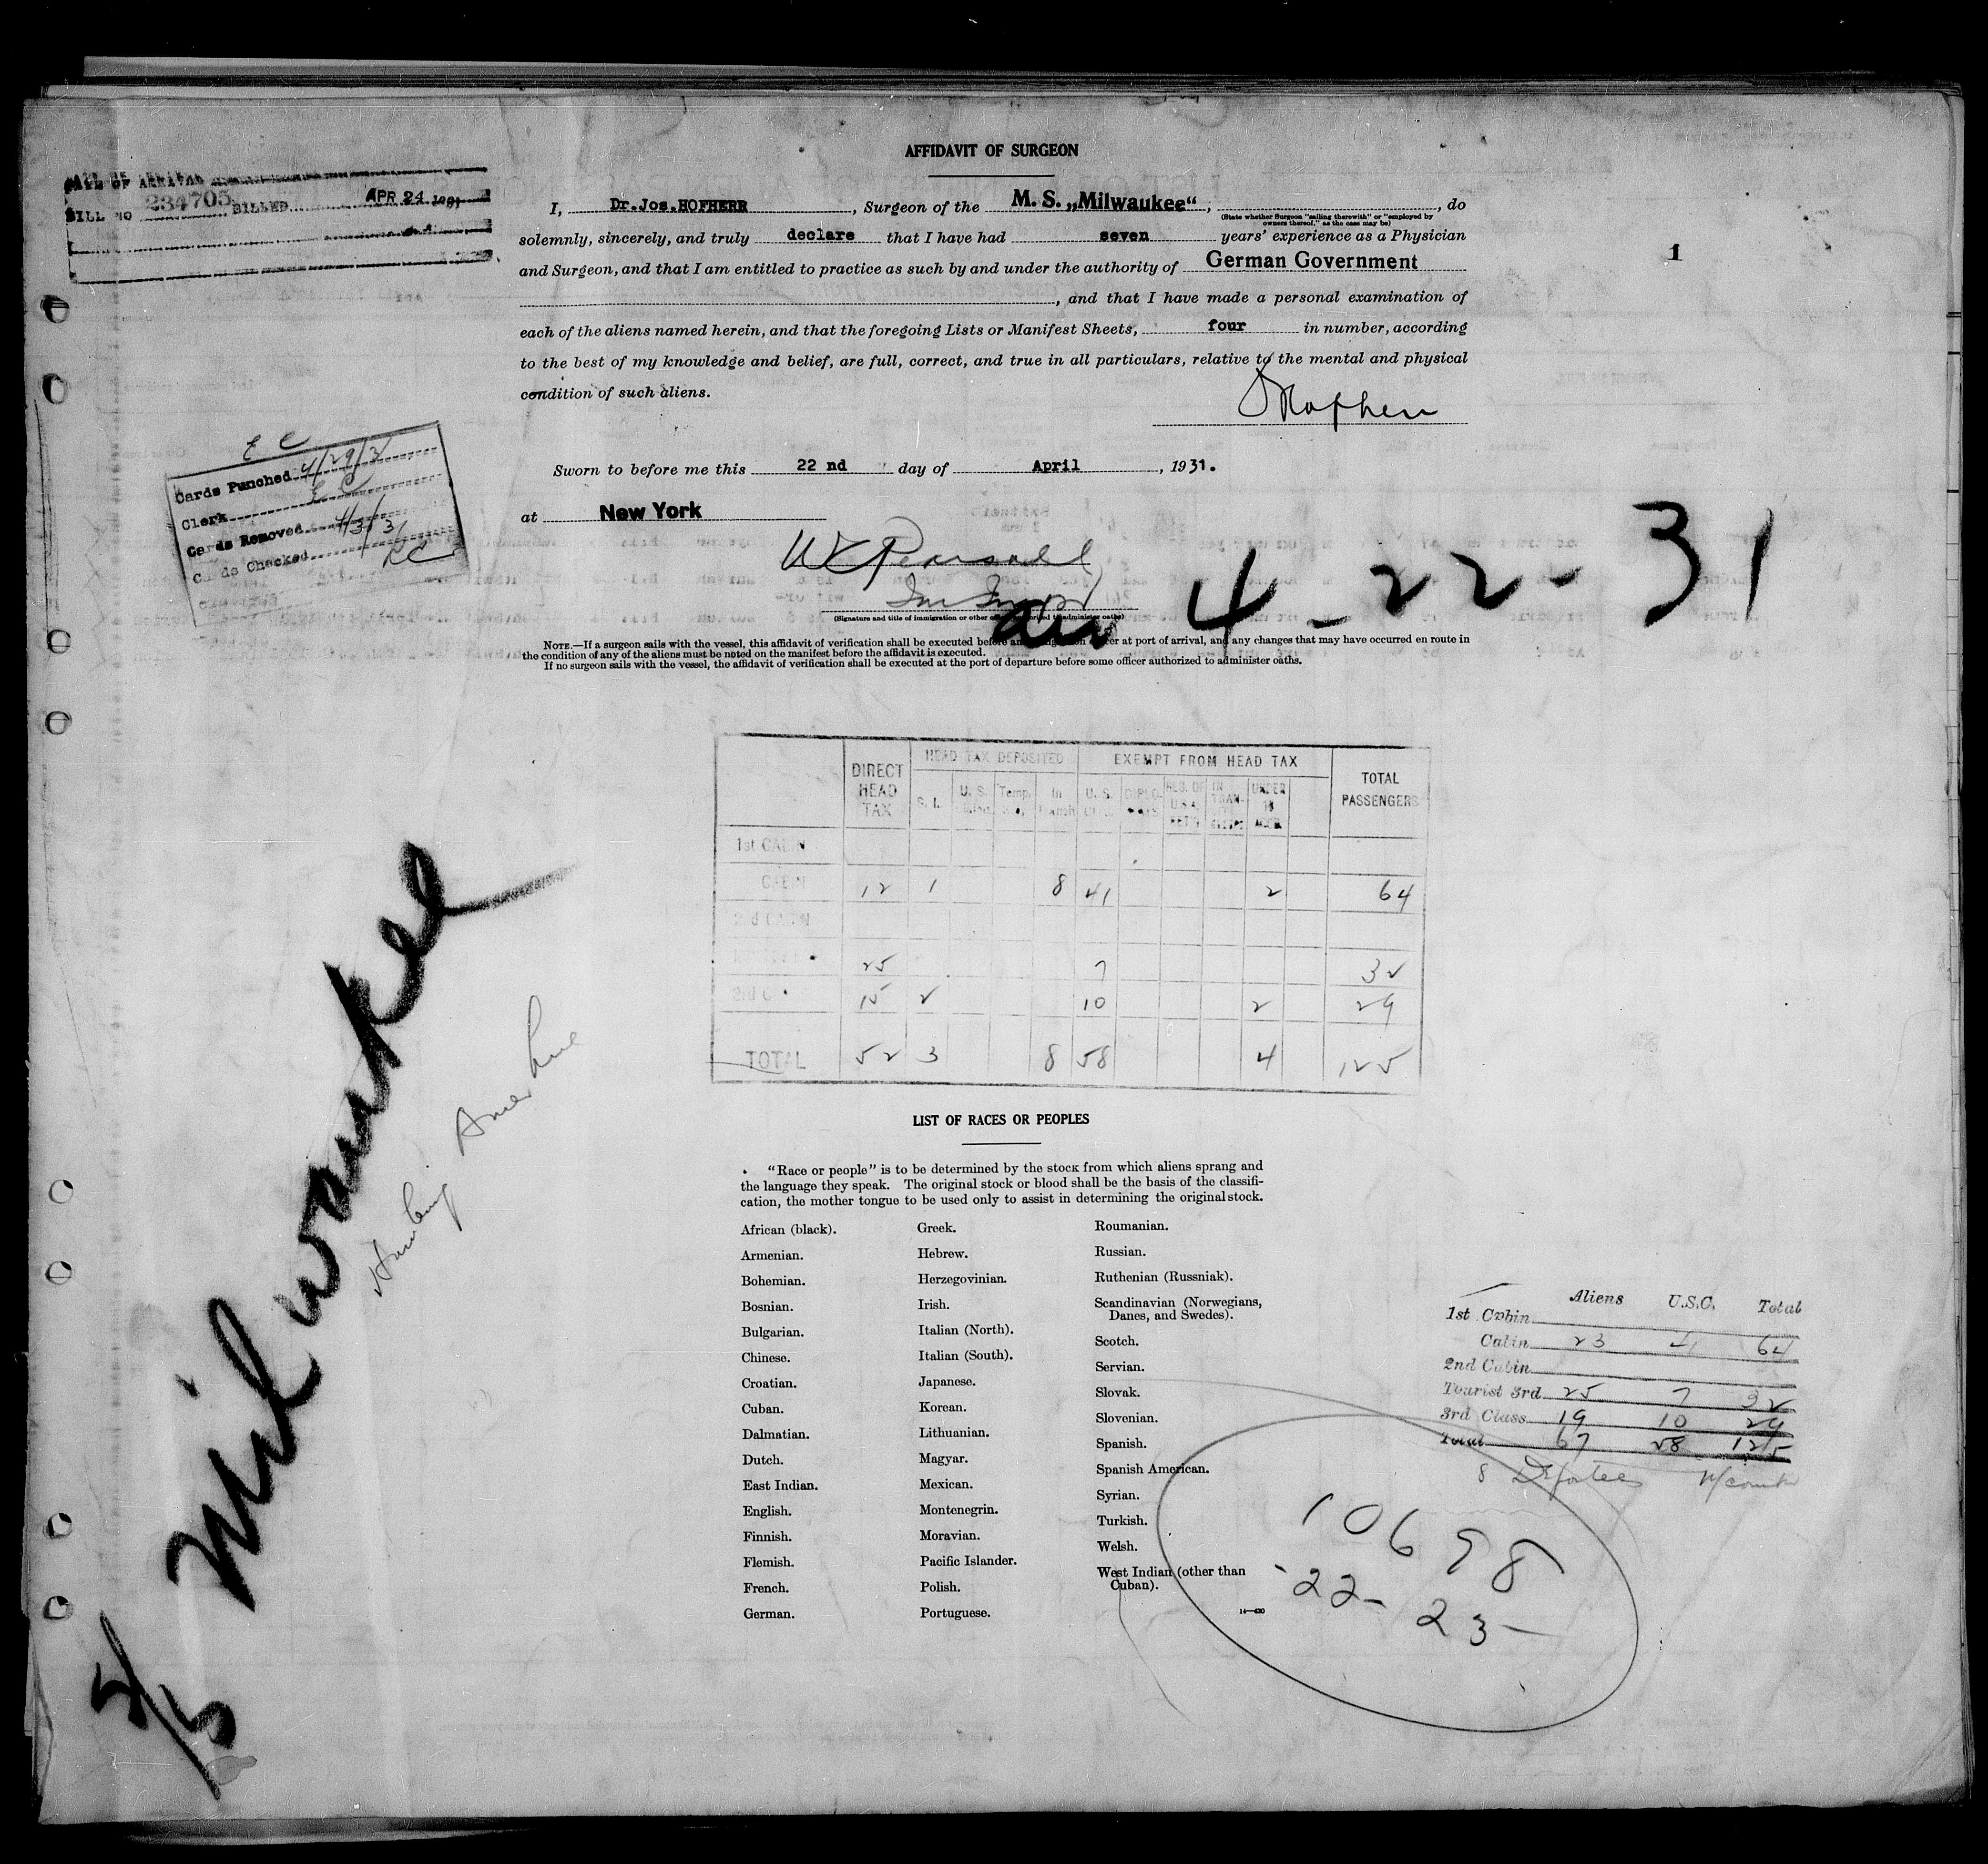 AFFIDAVIT OF SURGEON
DATE OF ARRIVAL
BILL NO 234705 BILLED APR 24 1931
I, Dr.Jos.HOFHERR, Surgeon of the M. S. „Milwaukee“, , do
(State whether Surgeon "sailing therewith" or "employed by
owners thereof," as the case may be)
solemnly, sincerely, and truly declare that I have had seven years' experience as a Physician
and Surgeon, and that I am entitled to practice as such by and under the authority of German Government
, and that I have made a personal examination of
1
each of the aliens named herein, and that the foregoing Lists or Manifest Sheets, four in number, according
to the best of my knowledge and belief, are full, correct, and true in all particulars, relative to the mental and physical
condition of such aliens.
E C
Cards Punched 4/29/31
Clerk E C
Cards Removed
Cards Checked
Sworn to before me this 22 nd day of April, 1931.
at New York
W Pearsall
4-22-31
(Signature and title of immigration or other
NOTE.—If a surgeon sails with the vessel, this affidavit of verification shall be executed before an officer at port of arrival, and any changes that may have occurred en route in
the condition of any of the aliens must be noted on the manifest before the affidavit is executed.
If no surgeon sails with the vessel, the affidavit of verification shall be executed at the port of departure before some officer authorized to administer oaths.
DIRECT HEAD TAX
HEAD TAX DEPOSITED
EXEMPT FROM HEAD TAX
TOTAL PASSENGERS
S. I. U. S. Temp. In U. S. DIPLO- RES. OF U.S.A. RET'G IN TRAN- UNDER 16
1st CABIN
CABIN 12 1 8 41 2 64
2nd CABIN
25 7 32
3rd C 15 2 10 2 29
TOTAL 52 3 8 58 4 125
Milwaukee
Hamburg Amer Line
5/15
LIST OF RACES OR PEOPLES
"Race or people" is to be determined by the stock from which aliens sprang and
the language they speak. The original stock or blood shall be the basis of the classifi-
cation, the mother tongue to be used only to assist in determining the original stock.
African (black).
Armenian.
Bohemian.
Bosnian.
Bulgarian.
Chinese.
Croatian.
Cuban.
Dalmatian.
Dutch.
East Indian.
English.
Finnish.
Flemish.
French.
German.
Greek.
Hebrew.
Herzegovinian.
Irish.
Italian (North).
Italian (South).
Japanese.
Korean.
Lithuanian.
Magyar.
Mexican.
Montenegrin.
Moravian.
Pacific Islander.
Polish.
Portuguese.
Roumanian.
Russian.
Ruthenian (Russniak).
Scandinavian (Norwegians,
Danes, and Swedes).
Scotch.
Servian.
Slovak.
Slovenian.
Spanish.
Spanish American.
Syrian.
Turkish.
Welsh.
West Indian (other than
Cuban).
14—430
Aliens U.S.C. Total
1st Cabin
Cabin 23 41 64
2nd Cabin
Tourist 3rd 25 7 32
3rd Class 19 10 29
Total 67 58 125
8 Deportees
10698
22-23-